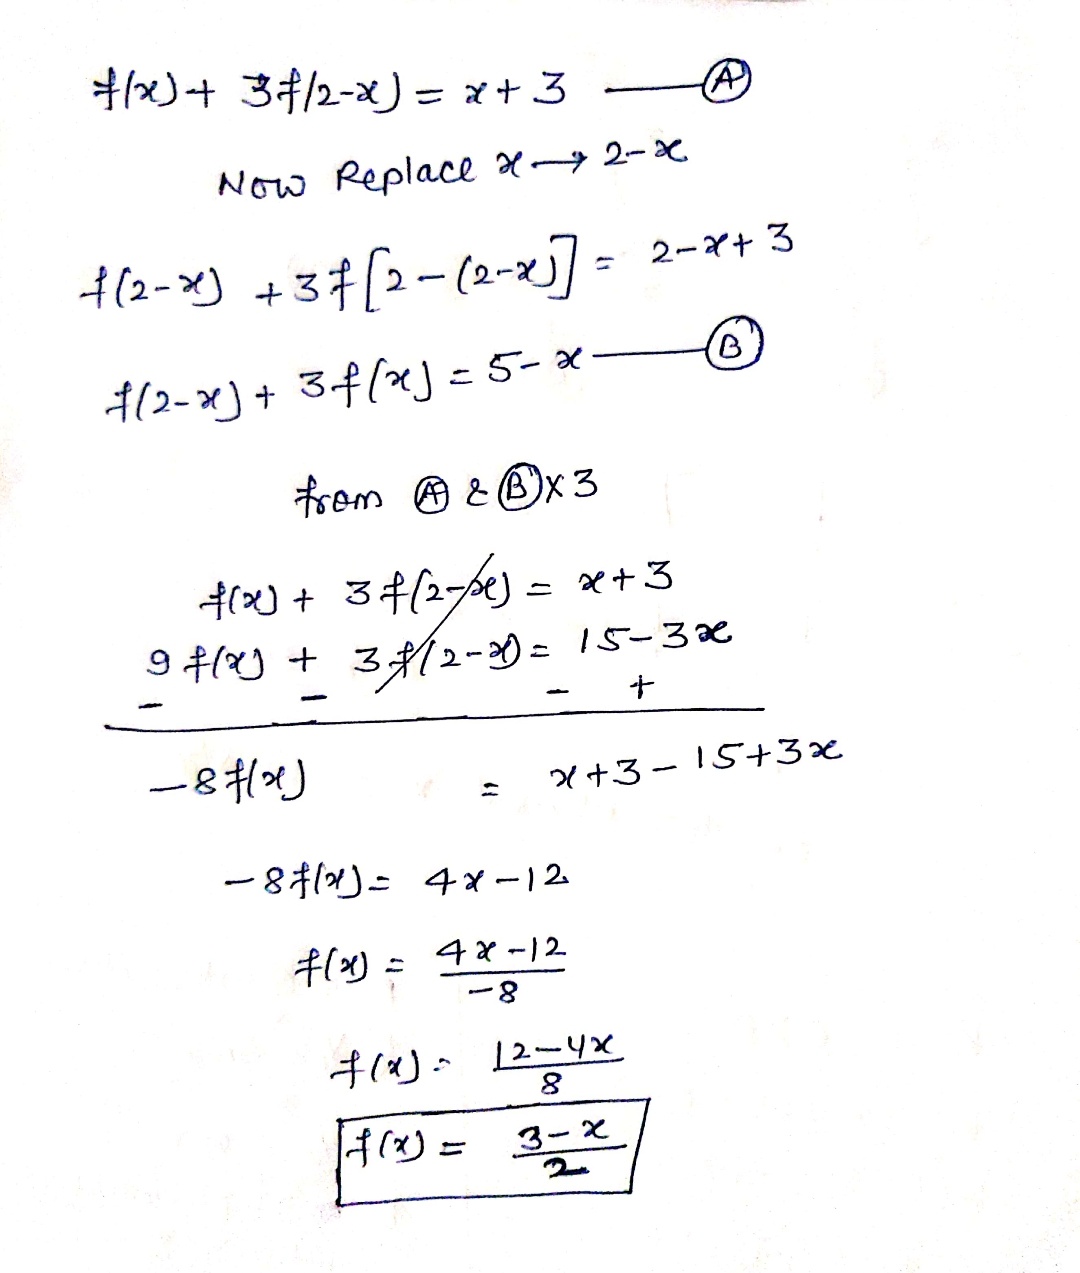 f(x) + 3f(2-x) = x + 3 —— Ⓐ
Now Replace x → 2-x
f(2-x) + 3f[2-(2-x)] = 2-x+3
f(2-x) + 3f(x) = 5-x —— Ⓑ
from Ⓐ & Ⓑ×3
f(x) + 3f(2-x) = x+3
9f(x) + 3f(2-x) = 15-3x
- - - +
-8f(x) = x+3-15+3x
-8f(x) = 4x-12
f(x) = 4x-12
-8
f(x) = 12-4x
8
f(x) = 3-x
2